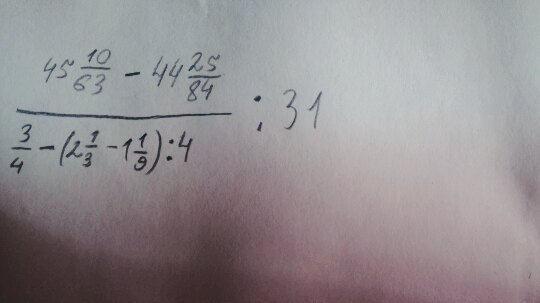 45 10/63 - 44 25/84 : 31
3/4 - (2 1/3 - 1 1/9) : 4